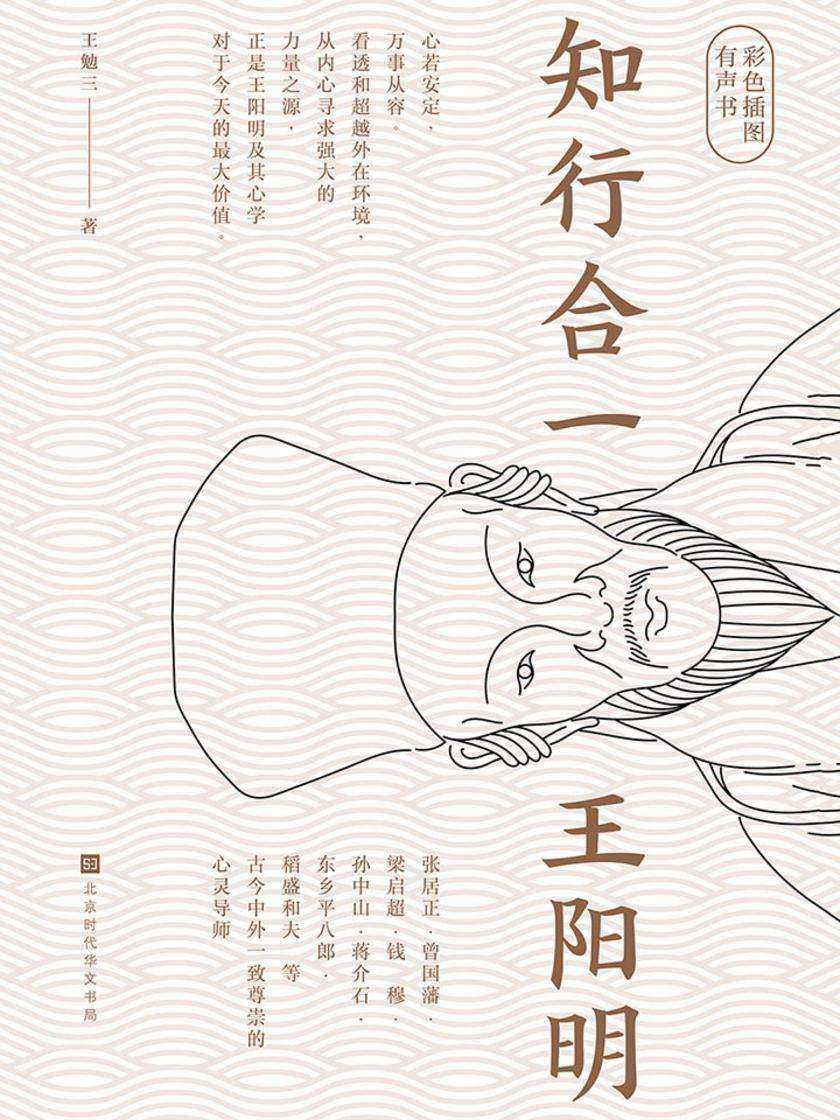 彩色插图
有声书
知行合一
王阳明
心若安定，
万事从容。
看透和超越外在环境，
从内心寻求强大的
力量之源，
正是王阳明及其心学
对于今天的最大价值。
张居正·曾国藩·
梁启超·钱 穆·
孙中山·蒋介石·
东乡平八郎·
稻盛和夫 等
古今中外一致尊崇的
心灵导师
王勉三——著
北京时代华文书局